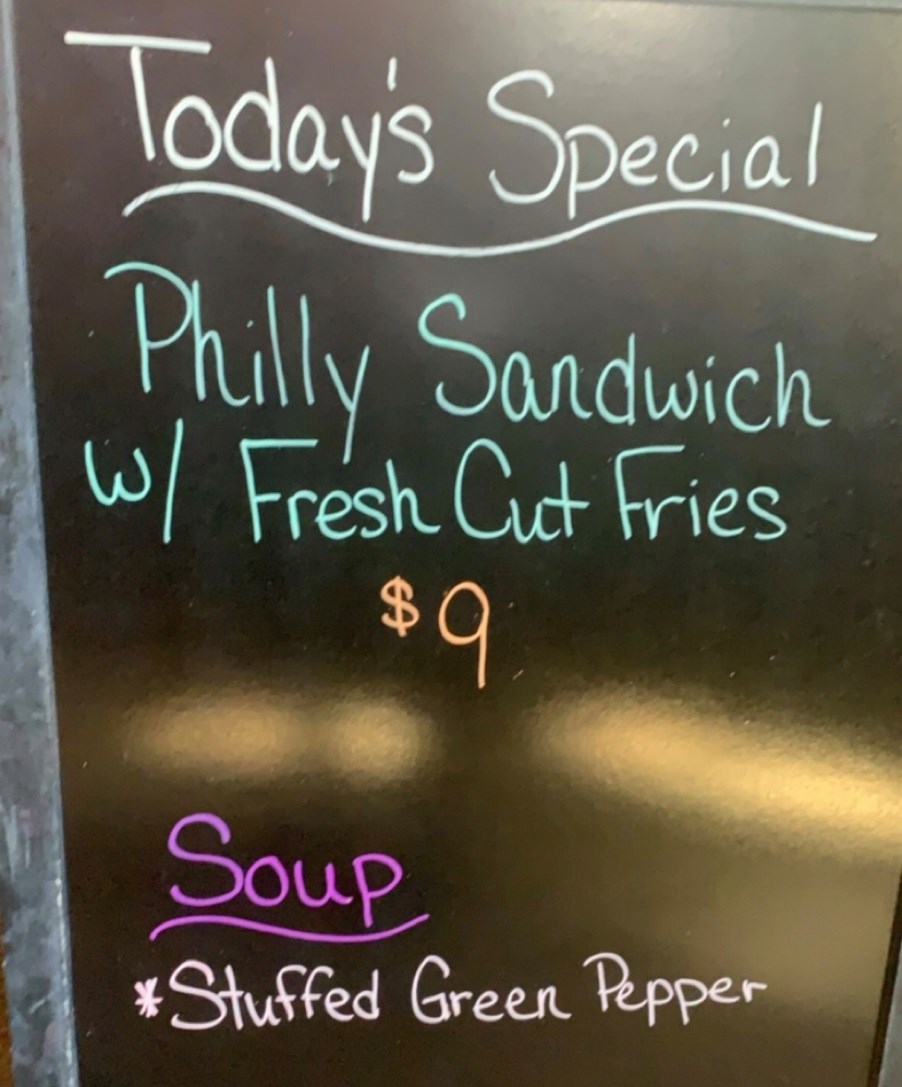 Today's Special
Philly Sandwich
w/ Fresh Cut Fries
$9
Soup
*Stuffed Green Pepper